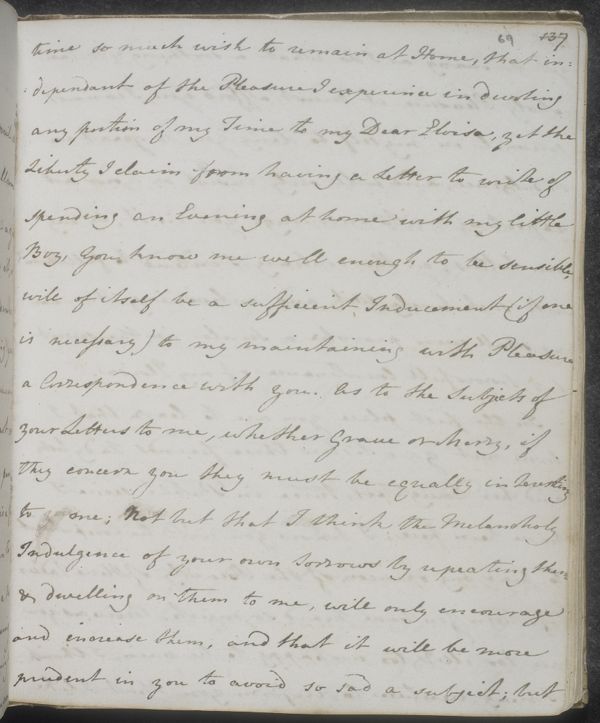 69 137
time so much wish to remain at Home, that in=
=dependant of the Pleasure I experience in devoting
any portion of my Time to my Dear Eloisa, yet the
Liberty I claim from having a Letter to write of
spending an Evening at home with my little
Boy, you know me well enough to be sensible,
will of itself be a sufficient Inducement (if one
is necessary) to my maintaining with Pleasure
a Correspondence with you. As to the Subjects of
your Letters to me, whether Grave or Merry, if
they concern you they must be equally interesting
to me; not but that I think the Melancholy
Indulgence of your own Sorrows by repeating them
& dwelling on them to me, will only encourage
and increase them, and that it will be more
prudent in you to avoid so sad a subject; but